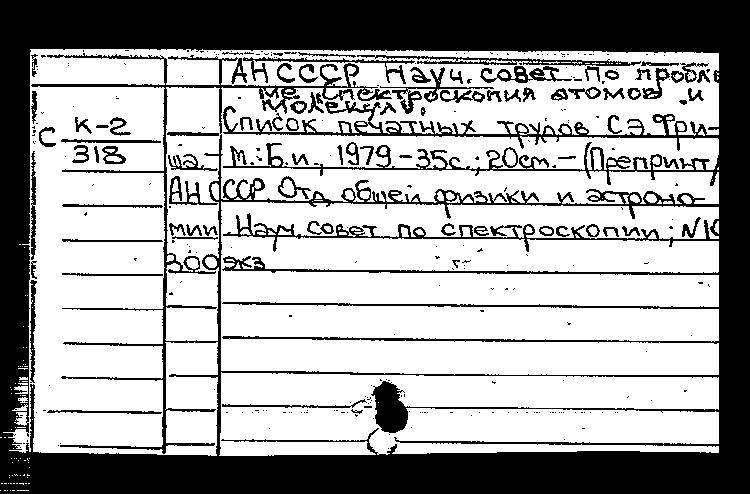 АН СССР. Науч. совет по пробле
ме „Спектроскопия атомов и
молекул".
С К-2
318
Список печатных трудов С.Э. Фри-
ша. – М.: Б.и., 1979. – 35с.; 20см. – (Препринт/
АН СССР. Отд. общей физики и астроно-
мии. Науч. совет по спектроскопии; N К
300 экз.